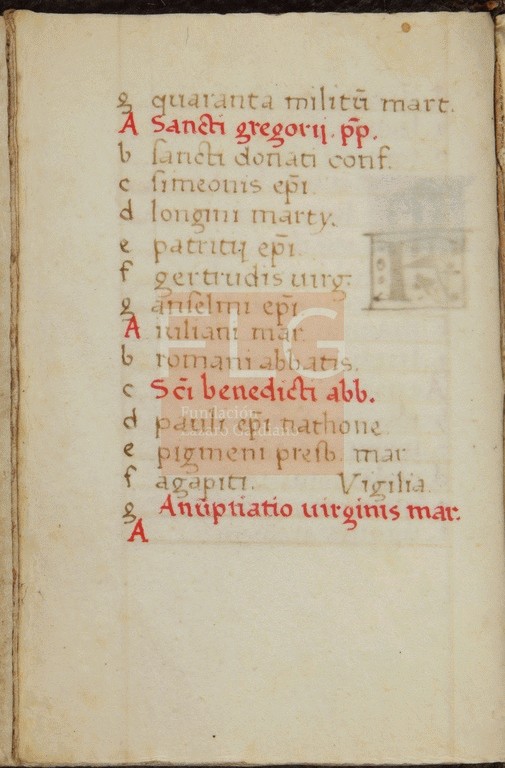 g quaranta militū mart.
A Sancti gregorij. pp̄.
b sancti donati conf.
c simeonis ep̄i.
d longini marty.
e patritij ep̄i.
f gertrudis uirg:
g anselmi ep̄i
A iuliani mar
b romani abbatis.
c Sc̄i benedicti abb.
d pauli ep̄i nathone
e pigmeni presb. mar
f agapiti. Vigilia.
g An̄uptiatio uirginis mar.
A
FLG
Fundación
Lázaro Galdiano